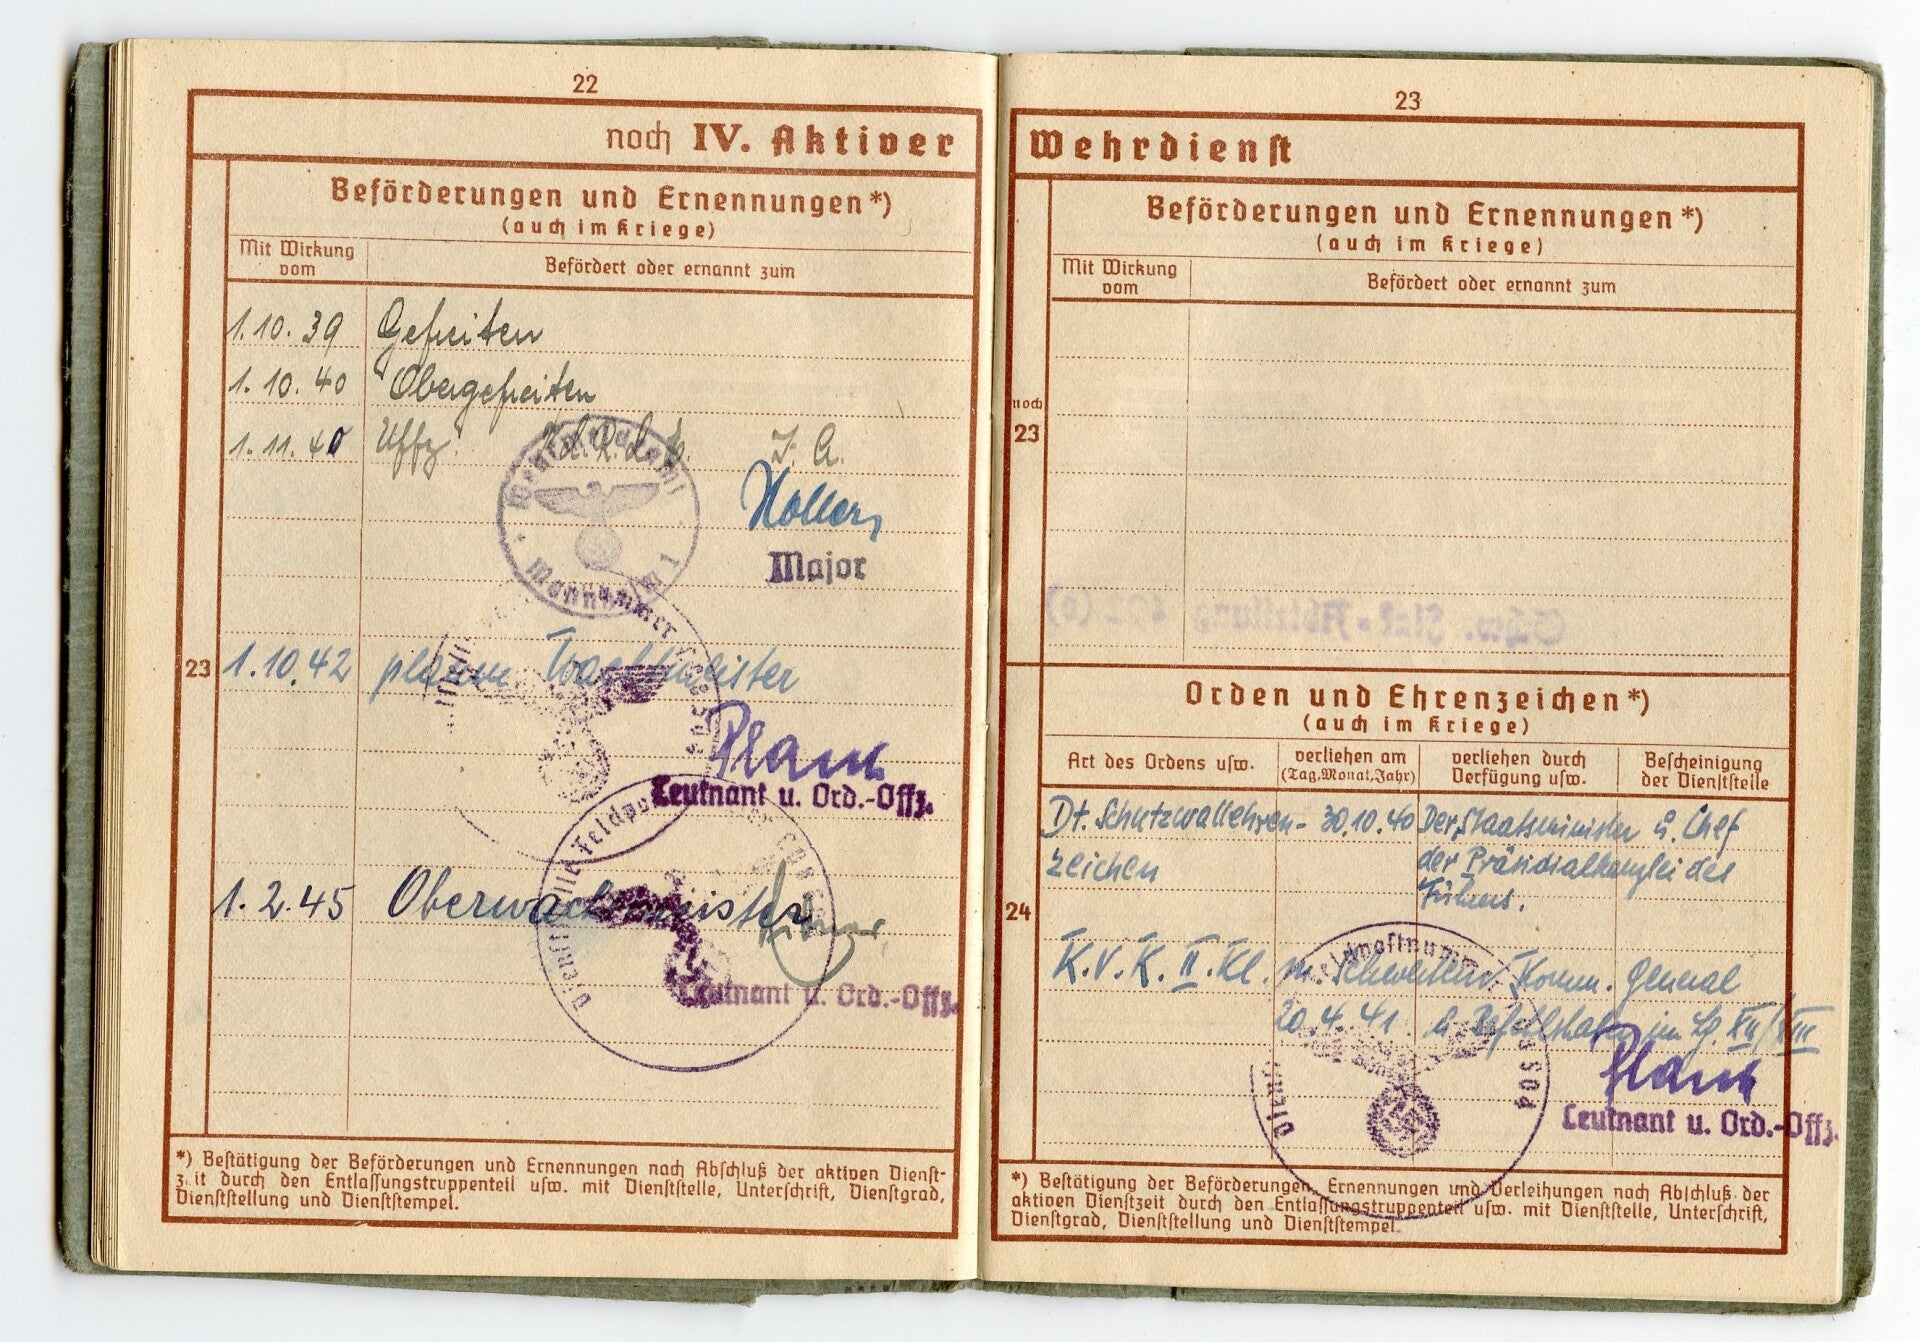 22
noch IV. Aktiver
Beförderungen und Ernennungen *)
(auch im Kriege)
Mit Wirkung vom
Befördert oder ernannt zum
1.10.39 Gefreiten
1.10.40 Obergefreiten
1.11.40 Uffz. d. R. d. I. A.
Major
23
1.10.42 planm. Wachtmeister
Plank
Leutnant u. Ord.-Offz.
1.2.45 Oberwachtmeister
Leutnant u. Ord.-Offz.
*) Bestätigung der Beförderungen und Ernennungen nach Abschluß der aktiven Dienst-
zeit durch den Entlassungstruppenteil usw. mit Dienststelle, Unterschrift, Dienstgrad,
Dienststellung und Dienststempel.
23
Wehrdienst
Beförderungen und Ernennungen *)
(auch im Kriege)
Mit Wirkung vom
Befördert oder ernannt zum
noch
23
Orden und Ehrenzeichen *)
(auch im Kriege)
Art des Ordens usw.
verliehen am (Tag, Monat, Jahr)
verliehen durch Verfügung usw.
Bescheinigung der Dienststelle
Dt. Schutzwallehren- 30.10.40 Der Staatsminister u. Chef
zeichen der Präsidialkanzlei des
Führers.
24
K.V.K. II. Kl. m. Schwertern Komm. General
20.4.41 u. Befehlshaber im Lg. XII/XIII
Plank
Leutnant u. Ord.-Offz.
*) Bestätigung der Beförderungen, Ernennungen und Verleihungen nach Abschluß der
aktiven Dienstzeit durch den Entlassungstruppenteil usw. mit Dienststelle, Unterschrift,
Dienstgrad, Dienststellung und Dienststempel.